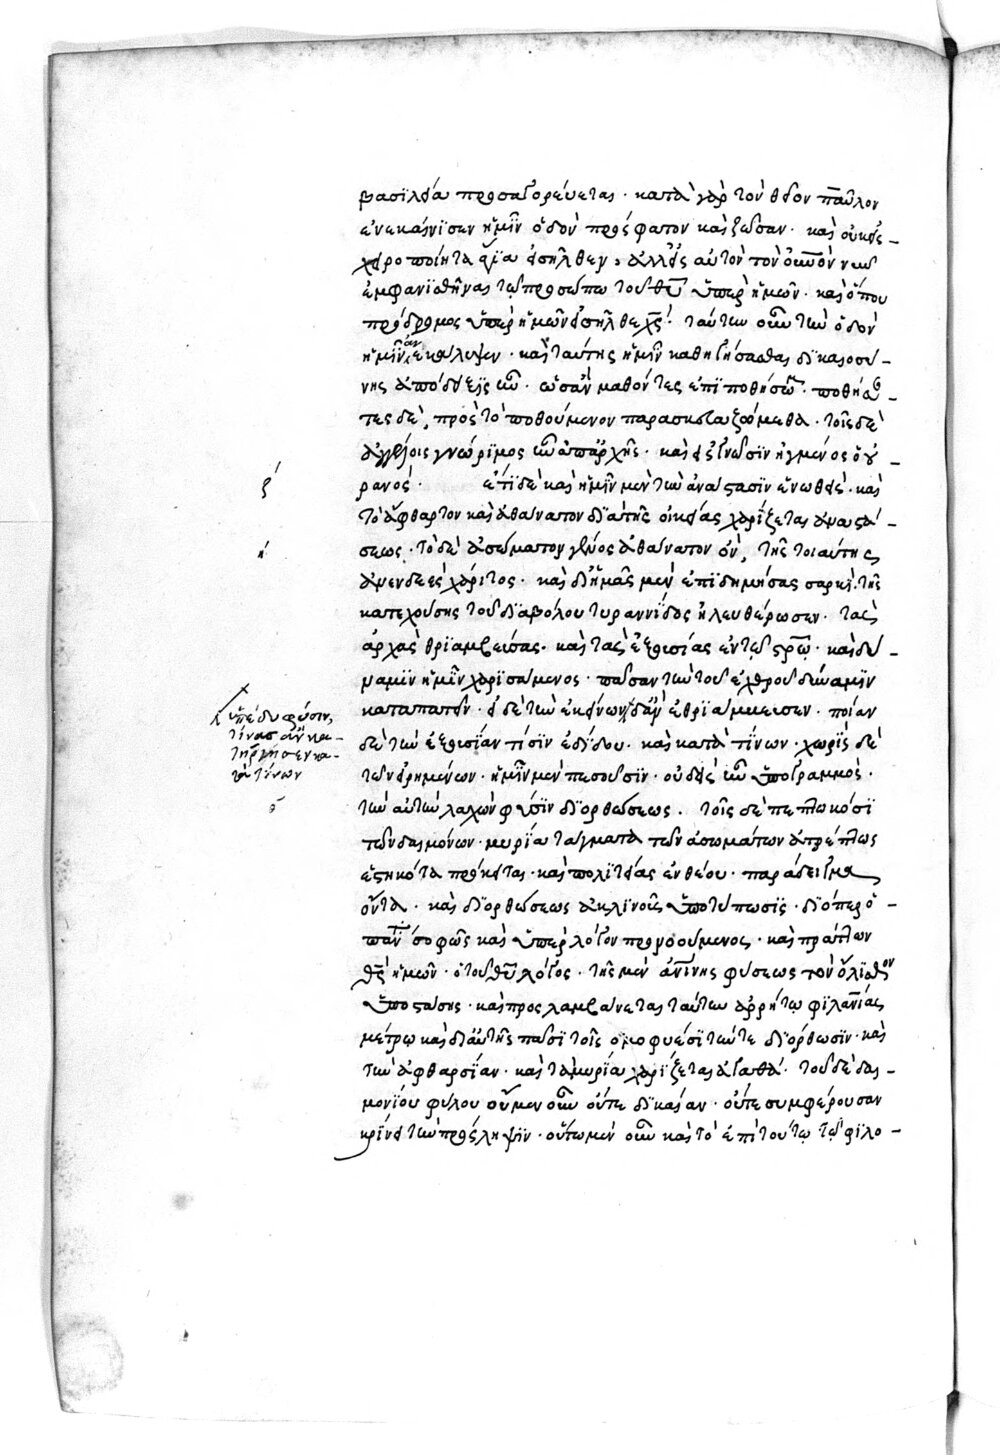 βασϊλέα προσαγορεύεται. κατὰ γὰρ τὸν θεῖον παῦλον
ἐνεκαίνισεν ἡμῖν ὁδὸν πρόσφατον καὶ ζῶσαν. καὶ οὐκ εἰς
χειροποίητα ἅγια εἰσῆλθεν, ἀλλ' εἰς αὐτὸν τὸν οὐνὸν νῦν
ἐμφανισθῆναι τῷ προσώπω τοῦ θυ ὑπὲρ ἡμῶν. καὶ ὅπου
πρόδρομος ὑπὲρ ἡμῶν εἰσῆλθε χς. ταύτην οὖν τὴν ὁδὸν
ἡμῖν ἀνεκάλυψεν. καὶ ταύτης ἡμῖν καθηγήσασθαι δϊκαιοσύ-
νης
τες δὲ, πρὸς τὸ ποθούμενον παρασκευαζώμεθα. τοῖς δὲ
ἀγγέλοις γνώρϊμος ἦν ἀπαρχῆς. καὶ
ρανός. ἔτϊ δὲ καὶ ἡμῖν μὲν τὴν ἀνάστασϊν
τὸ ἄφθαρτον καὶ ἀθάνατον δϊὰ τῆς οἰκείας χαρίζεται ἀναστά-
σεως. τὸ δὲ ἀσώματον γένος ἀθάνατον ὂν, τῆς τοιαύτης
ἀνενδεὲς χάρϊτος. καὶ δϊ' ἡμᾶς μὲν ἐπϊδημήσας σαρκὶ, τῆς
κατεχούσης τοῦ δϊαβόλου τυραννίδος ἠλευθέρωσεν. τὰς
ἀρχὰς θρϊαμβεύσας. καὶ τὰς ἐξουσίας ἐν τῷ στρῶ. καὶ δύ-
ναμϊν ἡμῖν χαρϊσάμενος. πᾶσαν τὴν τοῦ ἐχθροῦ δύναμϊν
καταπατεῖν. εἰ δὲ τὴν ἐκείνων ἐθρϊάμβευσεν. ποίαν
δὲ τὴν ἐξουσϊαν τισϊν ἐδίδου. καὶ κατὰ τίνων. χωρϊς δὲ
τῶν εἰρημένων. ἡμῖν μὲν πεσοῦσϊν. οὐδεὶς ἦν ὑπογραμμὸς.
τὴν αὐτὴν λαχὼν φύσϊν δϊορθώσεως. τοῖς δὲ πεπλωκόσϊ
τῶν δαιμόνων. μυρία τάγματα τῶν ἀσωμάτων ἀτρέπτως
ἑστηκότα πρόκειται. καὶ πολϊτείας ἐνθέου. παράδειγμα
ὄντα. καὶ δϊορθώσεως ἀκλϊνοῦς ὑποτύπωσϊς. δϊόπερ ὁ
πάντ σοφῶς καὶ ὑπὲρ λόγον προνοούμενος. καὶ πράττων
θς ἡμῶν. ὁ τοῦ θυ λόγος. τῆς μὲν ἀνίνης φύσεως τὸν ὄλϊσθον
ὑποστάσης. καὶ προσλαμβάνεται ταύτην ἀρρήτῳ φϊλανίας
μέτρῳ καὶ δϊ' αὐτῆς πᾶσϊ τοῖς ὁμοφυέσϊ τήν τε δϊόρθωσϊν. καὶ
τὴν ἀφθαρσίαν. καὶ τὰ μυρία χαρίζεται ἀγαθά. τοῦ δὲ δαι-
μονίου φύλου οὐ μὲν οὖν οὔτε δϊκαίαν. οὔτε συμφέρουσαν
κρίνει τὴν πρόσληψϊν. οὕτω μὲν οὖν καὶ τὸ ἐπὶ τούτῳ τῷ φϊλο-
ζ
η
ἀπέδυ φύσιν,
τίνας ἂν κα-
τήργησεν κα-
τὰ τίνων
θ